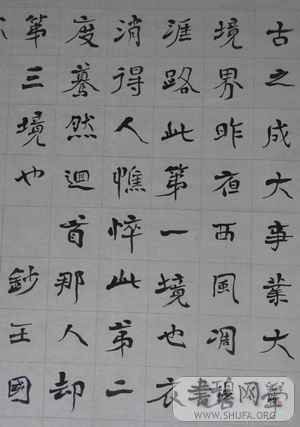 古之成大事業大學
境界昨夜西風凋碧
涯路此第一境也衣
消得人憔悴此第二
度驀然迴首那人却
第三境也 鈔王國
WWW.SHUFA.ORG